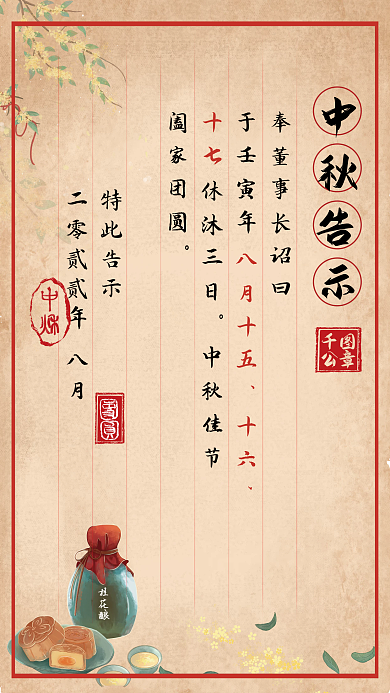 中秋告示
千图公章
奉董事长诏曰
于壬寅年八月十五、十六、
十七休沐三日。中秋佳节
阖家团圆。
特此告示
二零贰贰年 八月
中秋
桂花酿